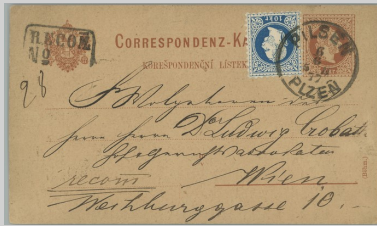 RECOM
No
28
CORRESPONDENZ-KA
KORESPONDENČNÍ LÍSTEK
10 KR
PILSEN
PLZEŇ
Sr Wohlgeboren den
Herrn Herrn Dor Ludwig
recom
Wien
Weihburggasse 10.